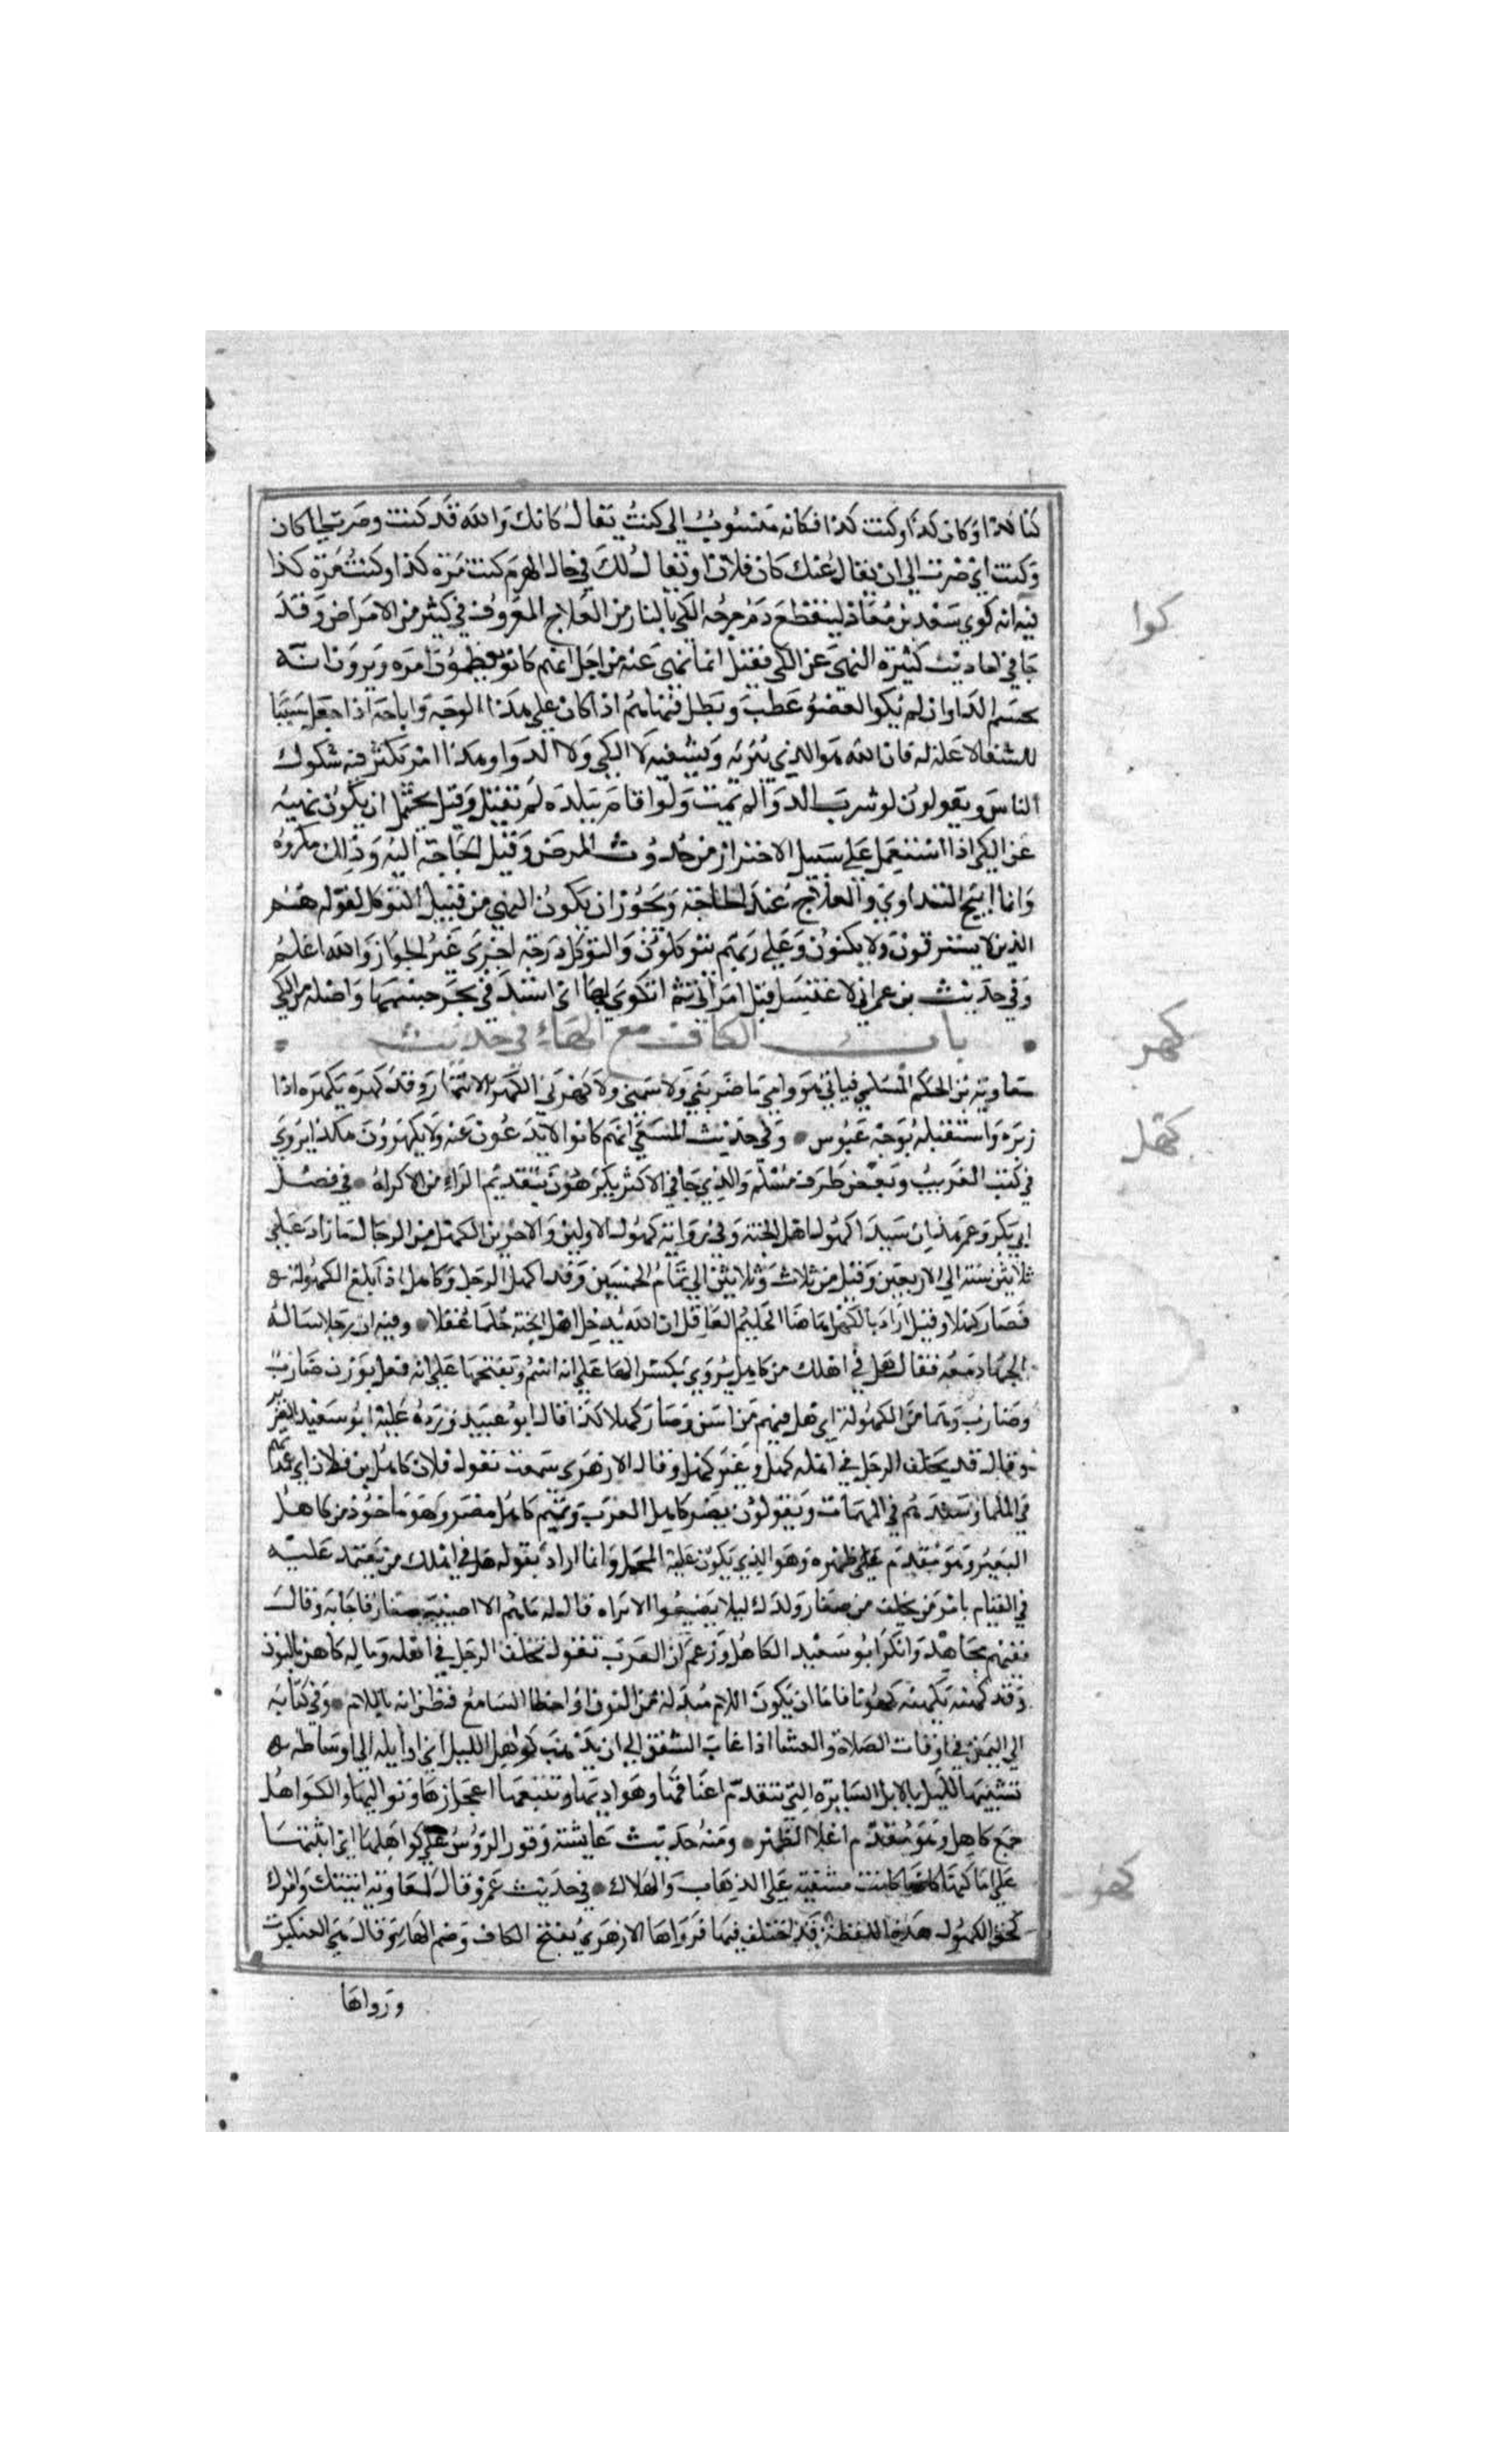 كنا كذا وكان كذا وكنت كذا فكانه منسوب الى كنت يقال كانك والله قد كنت وصرت الى كان
وكنت اي صرت الى ان يقال عنك كان فلان او يقال لك في حال الهرم كنت مرة كذا وكنت مرة كذا
كوا
فيه انه كوي سعد بن معاذ لينقطع دم جرحه الكي بالنار من العلاج المعروف في كثير من الامراض وقد
جا في احاديث كثيرة النهي عن الكي فقيل انما نهي عنه من اجل انهم كانوا يعظمون امره ويرون انه
يحسم الدا وان لم يكوا العضو عطب وبطل فنهاهم اذا كان علي هذا الوجه واباحه اذا جعل سببا
للشفا لا علة له فان الله هو الذي يبريه ويشفيه لا الكي ولا الدوا وهذا امر تكثر فيه شكوك
الناس ويقولون لو شرب الدوا لم يمت ولو اقام ببلده لم يقتل وقيل يحتمل ان يكون نهيه
عن الكي اذا استعمل علي سبيل الاحتراز من حدوث المرض وقبل الحاجة اليه وذلك مكروه
وانما ابيح التداوي والعلاج عند الحاجة ويجوز ان يكون النهي من قبيل التوكل لقوله هم
الذين لا يسترقون ولا يكتوون وعلي ربهم يتوكلون والتوكل درجة اخري غير الجواز والله اعلم
وفي حديث بن عمر اني لاغتسل قبل امراتي ثم اتكوي بها اي استد في بحر جسمها واصله من الكي
باب الكاف مع الهاء في حديث
كهر
معاوية بن الحكم السلمي فبابي هو وامي ما ضربني ولا شتمني ولا كهرني الكهر الانتهار وقد كهره يكهره اذا
زبره واستقبله بوجه عبوس وفي حديث المسعي انهم كانوا لا يدعون عنه ولا يكهرون هكذا يروي
كهل
في كتب الغريب وبعض طرق مسلم والذي جا في الاكثر يكرهون بتقديم الراء من الاكراه في فضل
ابي بكر وعمر هذان سيدا كهول اهل الجنة وفي رواية كهول الاولين والاخرين الكهل من الرجال ما زاد علي
ثلاثين سنة الي الاربعين وقيل من ثلاث وثلاثين الي تمام الخمسين وقد اكهل الرجل وكاهل اذا بلغ الكهولة
فصار كهلا وقيل اراد بالكهل هاهنا الحليم العاقل ان الله يدخل اهل الجنة حلما عقلا وفيه ان رجلا ساله
الجهاد معه فقال هل في اهلك من كاهل يروي بكسر الها علي انه اسم وبفتحها علي انه فعل بوزن ضارب
وضارب وهما من الكهولة اي هل فيهم من اسن وصار كهلا كذا قال ابو عبيد ورده عليه ابو سعيد الضرير
وقال قد يخلف الرجل في اهله كهل وغير كهل وقال الازهري سمعت تقول فلان كاهل بني فلان اي عمدتهم
في الملمات وسندهم في المهمات ويقولون مضر كاهل العرب وتميم كاهل مضر وهو ماخوذ من كاهل
البعير وهو مقدم علي ظهره وهو الذي يكون عليه المحمل وانما اراد بقوله هل في اهلك من يعتمد عليه
في القيام بامر من يخلف من صغار ولدك ليلا يضيعوا الا تراه قال له ما هم الا اصيبية صغار فاجابه وقال
ففيهم فجاهد وانكر ابو سعيد الكاهل وزعم ان العرب تقول تخلف الرجل في اهله وماله كاهن بالنون
وقد كهنه يكهنه كهونا فاما ان يكون اللام مبدلة من النون او اخطا السامع فظن انه باللام وفي كتابه
الي اليمن في اوقات الصلاة والعشا اذا غاب الشفق الي ان يذهب كواهل الليل اي اوايله الي اوساطه
تشبيها لليل بالابل السايرة التي تتقدم اعناقها وهواديها وتتبعها اعجازها وتواليها والكواهل
جمع كاهل وهو مقدم اعلا الظهر ومنه حديث عايشة وقرر الرؤس علي كواهلها اي اثبتها
علي اماكنها كانها كانت مشفية علي الذهاب والهلاك في حديث عمرو قال لمعاوية اتيتك وامرك
كهول
كحق الكهول هذه اللفظة قد اختلف فيها فرواها الازهري بفتح الكاف وضم الهاء وقال هي العنكبوت
ورواها